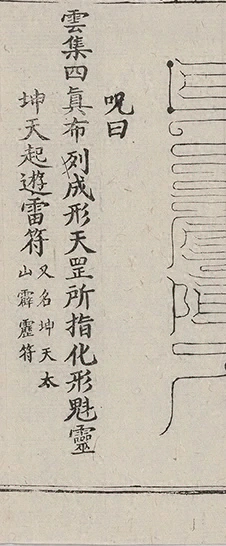 呪曰
雲集四真布列成形天罡所指化形魁靈
坤天起遊雷符又名坤天太
山霹靂符